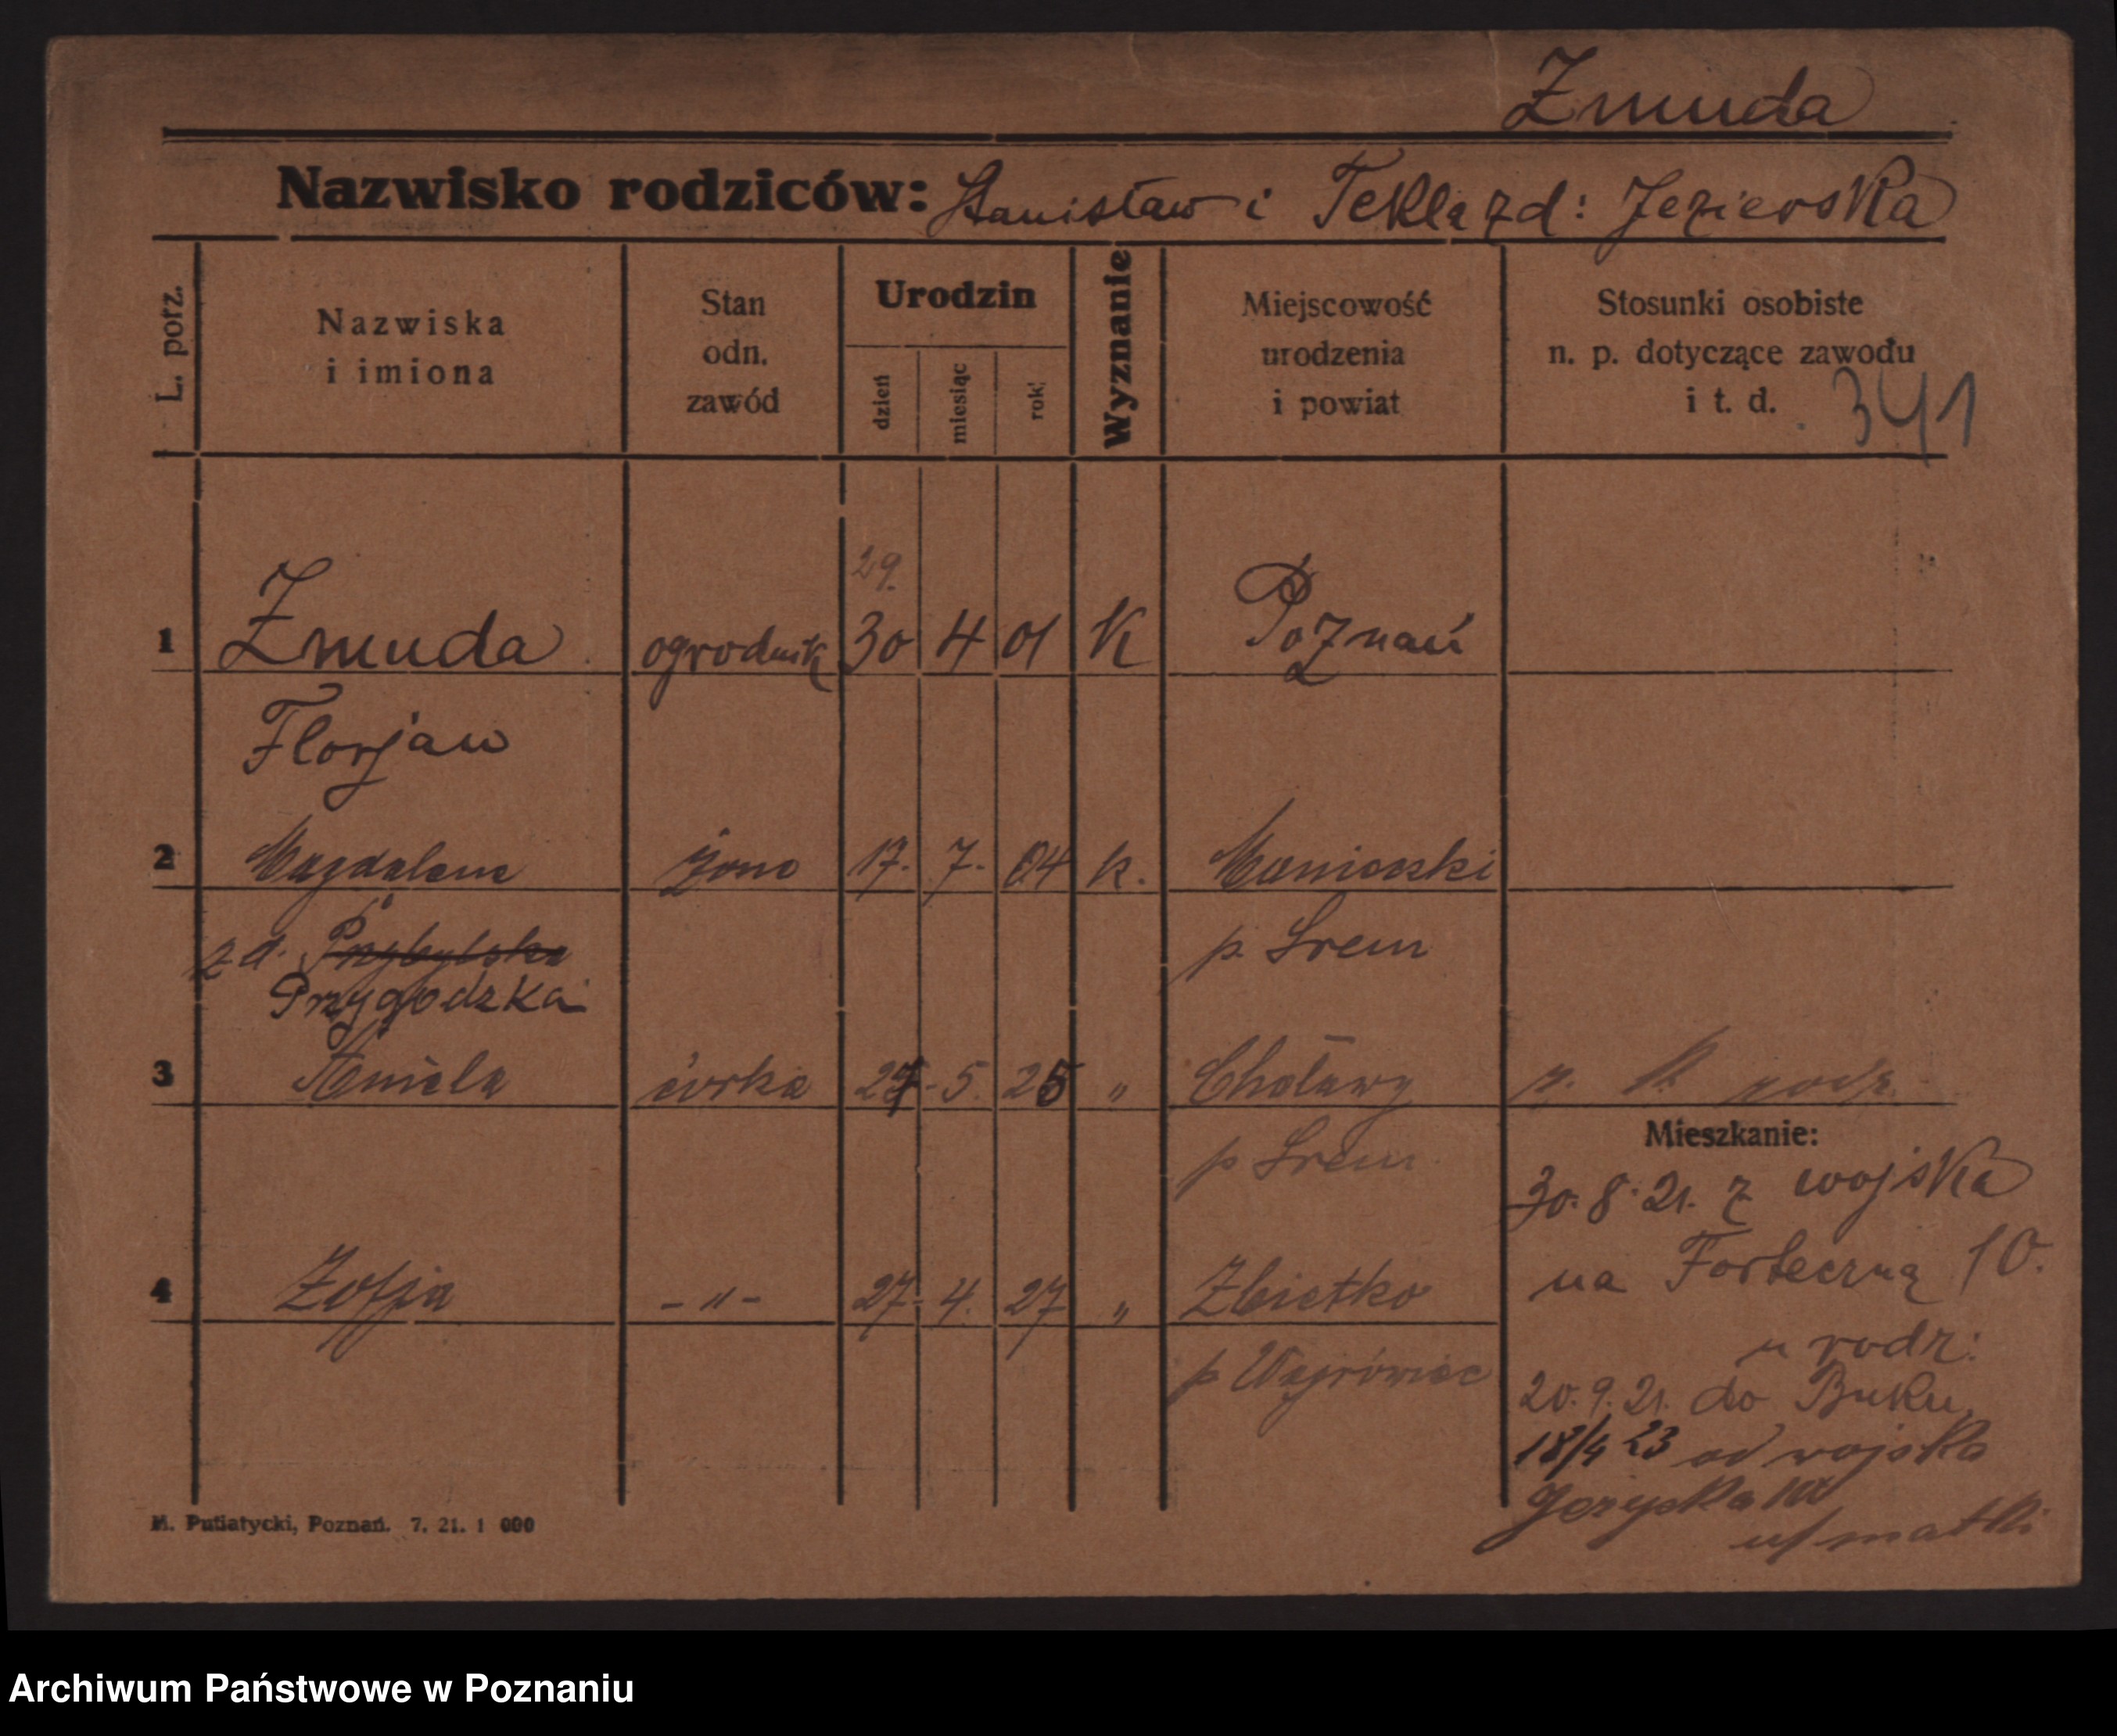 Żmuda
Nazwisko rodziców: Stanisław i Tekla zd: Jezierska
L. porz.
Nazwiska
i imiona
Stan
odn.
zawód
Urodzin
dzień
miesiąc
rok
Wyznanie
Miejscowość
urodzenia
i powiat
Stosunki osobiste
n. p. dotyczące zawodu
i t. d. 341
29.
1 Żmuda ogrodnik 30 4 01 K Poznań
Florjan
2 Magdalena żona 17. 7. 04 k. Manieczki
zd. Przybylska p. Śrem
Przygodzka
3 Aniela córka 27. 5. 25 " Choławy
p Śrem
Mieszkanie:
30. 8. 21. z wojska
na Forteczną 10.
4 Zofja - " - 27. 4. 27 " Zbietka
u rodz:
p Wągrówiec
20. 9. 21. do Buku
18/4 23 od wojska
u/matki
M. Putiatycki, Poznań. 7. 21. 1 000
Archiwum Państwowe w Poznaniu